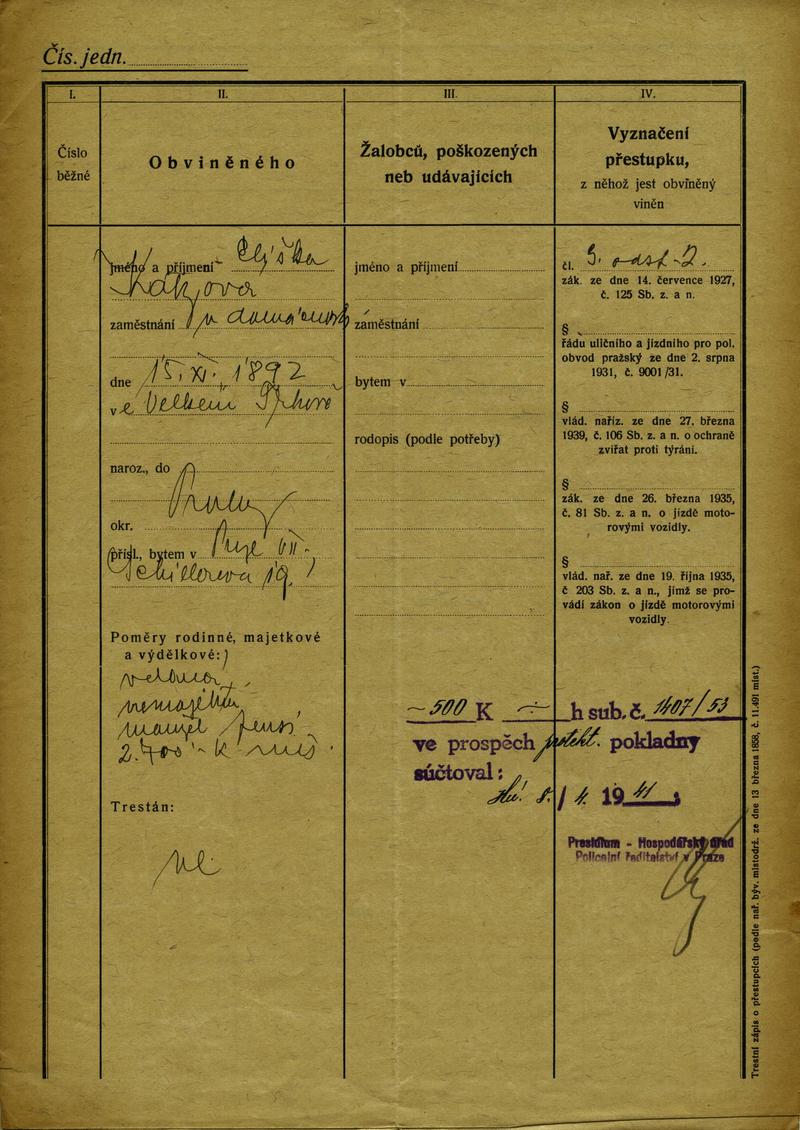 Čís. jedn.
I.
II.
III.
IV.
Číslo
běžné
Obviněného
Žalobců, poškozených
neb udávajících
Vyznačení
přestupku,
z něhož jest obviněný
viněn
jméno a příjmení Eliška
zaměstnání v domácnosti
dne 15. XI. 1892
ve Velkém
naroz., do
Prahy
okr.
přísl., bytem v Praze VII.
19.
Poměry rodinné, majetkové
a výdělkové:
nemajetná,
manžel
2.400 K
Trestán:
ne
jméno a příjmení
zaměstnání
bytem v
rodopis (podle potřeby)
čl. 3. odst. 2.
zák. ze dne 14. července 1927,
č. 125 Sb. z. a n.
§
řádu uličního a jízdního pro pol.
obvod pražský ze dne 2. srpna
1931, č. 9001/31.
§
vlád. naříz. ze dne 27. března
1939, č. 106 Sb. z. a n. o ochraně
zvířat proti týrání.
§
zák. ze dne 26. března 1935,
č. 81 Sb. z. a n. o jízdě moto-
rovými vozidly.
§
vlád. nař. ze dne 19. října 1935,
č 203 Sb. z. a n., jímž se pro-
vádí zákon o jízdě motorovými
vozidly.
500 K h sub. č. 1407/53
ve prospěch protekt. pokladny
súčtoval:
19 41
Presidium - Hospodářský úřad
Policejní ředitelství v Praze
Trestní zápis o přestupcích (podle nař. býv. místodrž. ze dne 13 března 1858, č. 11.491 míst.)